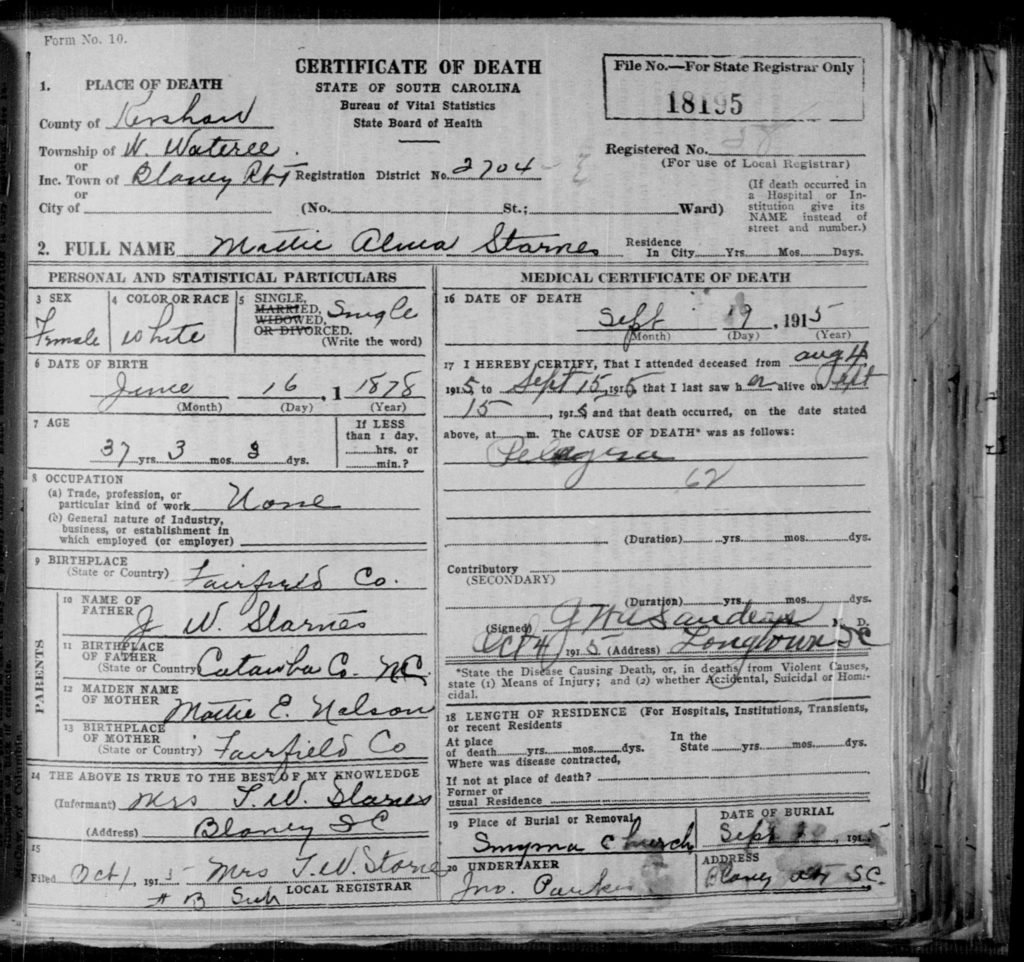 Form No. 10.
CERTIFICATE OF DEATH
STATE OF SOUTH CAROLINA
Bureau of Vital Statistics
State Board of Health
File No.—For State Registrar Only
18195
1. PLACE OF DEATH
County of Kershaw
Township of W. Wateree
or
Inc. Town of Blaney Registration District No. 2704
or
City of (No. St.; Ward)
Registered No.
(For use of Local Registrar)
(If death occurred in a Hospital or Institution give its NAME instead of street and number.)
2. FULL NAME Mattie Alma Starnes Residence In City Yrs. Mos. Days.
PERSONAL AND STATISTICAL PARTICULARS
3 SEX
Female
4 COLOR OR RACE
White
5 SINGLE, MARRIED, WIDOWED, OR DIVORCED. Single
(Write the word)
6 DATE OF BIRTH
June 16, 1 1878
(Month) (Day) (Year)
7 AGE
37 yrs. 3 mos. 3 dys.
If LESS than 1 day, hrs. or min.?
8 OCCUPATION
(a) Trade, profession, or particular kind of work None
(b) General nature of Industry, business, or establishment in which employed (or employer)
9 BIRTHPLACE
(State or Country) Fairfield Co.
PARENTS
10 NAME OF FATHER J. W. Starnes
11 BIRTHPLACE OF FATHER
(State or Country) Catawba Co. N.C.
12 MAIDEN NAME OF MOTHER Mattie E. Nelson
13 BIRTHPLACE OF MOTHER
(State or Country) Fairfield Co
14 THE ABOVE IS TRUE TO THE BEST OF MY KNOWLEDGE
(Informant) Mrs T. W. Starnes
(Address) Blaney S C
15
Filed Oct 1 1915 Mrs T. W. Starnes
LOCAL REGISTRAR
Sub
MEDICAL CERTIFICATE OF DEATH
16 DATE OF DEATH
Sept 19, 1915
(Month) (Day) (Year)
17 I HEREBY CERTIFY, That I attended deceased from Aug 4
1915, to Sept 15, 1915 that I last saw her alive on Sept
15, 1915 and that death occurred, on the date stated
above, at m. The CAUSE OF DEATH* was as follows:
Pellagra
62
(Duration) yrs. mos. dys.
Contributory
(SECONDARY)
(Duration) yrs. mos. dys.
(Signed) Sanders M. D.
Oct 4 1915 (Address) Longtown SC
*State the Disease Causing Death, or, in deaths from Violent Causes,
state (1) Means of Injury; and (2) whether Accidental, Suicidal or Homicidal.
18 LENGTH OF RESIDENCE (For Hospitals, Institutions, Transients, or recent Residents
At place of death yrs. mos. dys. In the State yrs. mos. dys.
Where was disease contracted,
If not at place of death?
Former or usual Residence
19 Place of Burial or Removal
Smyrna Church
DATE OF BURIAL
Sept 1915
20 UNDERTAKER
Jno. Parker
ADDRESS
Blaney SC.